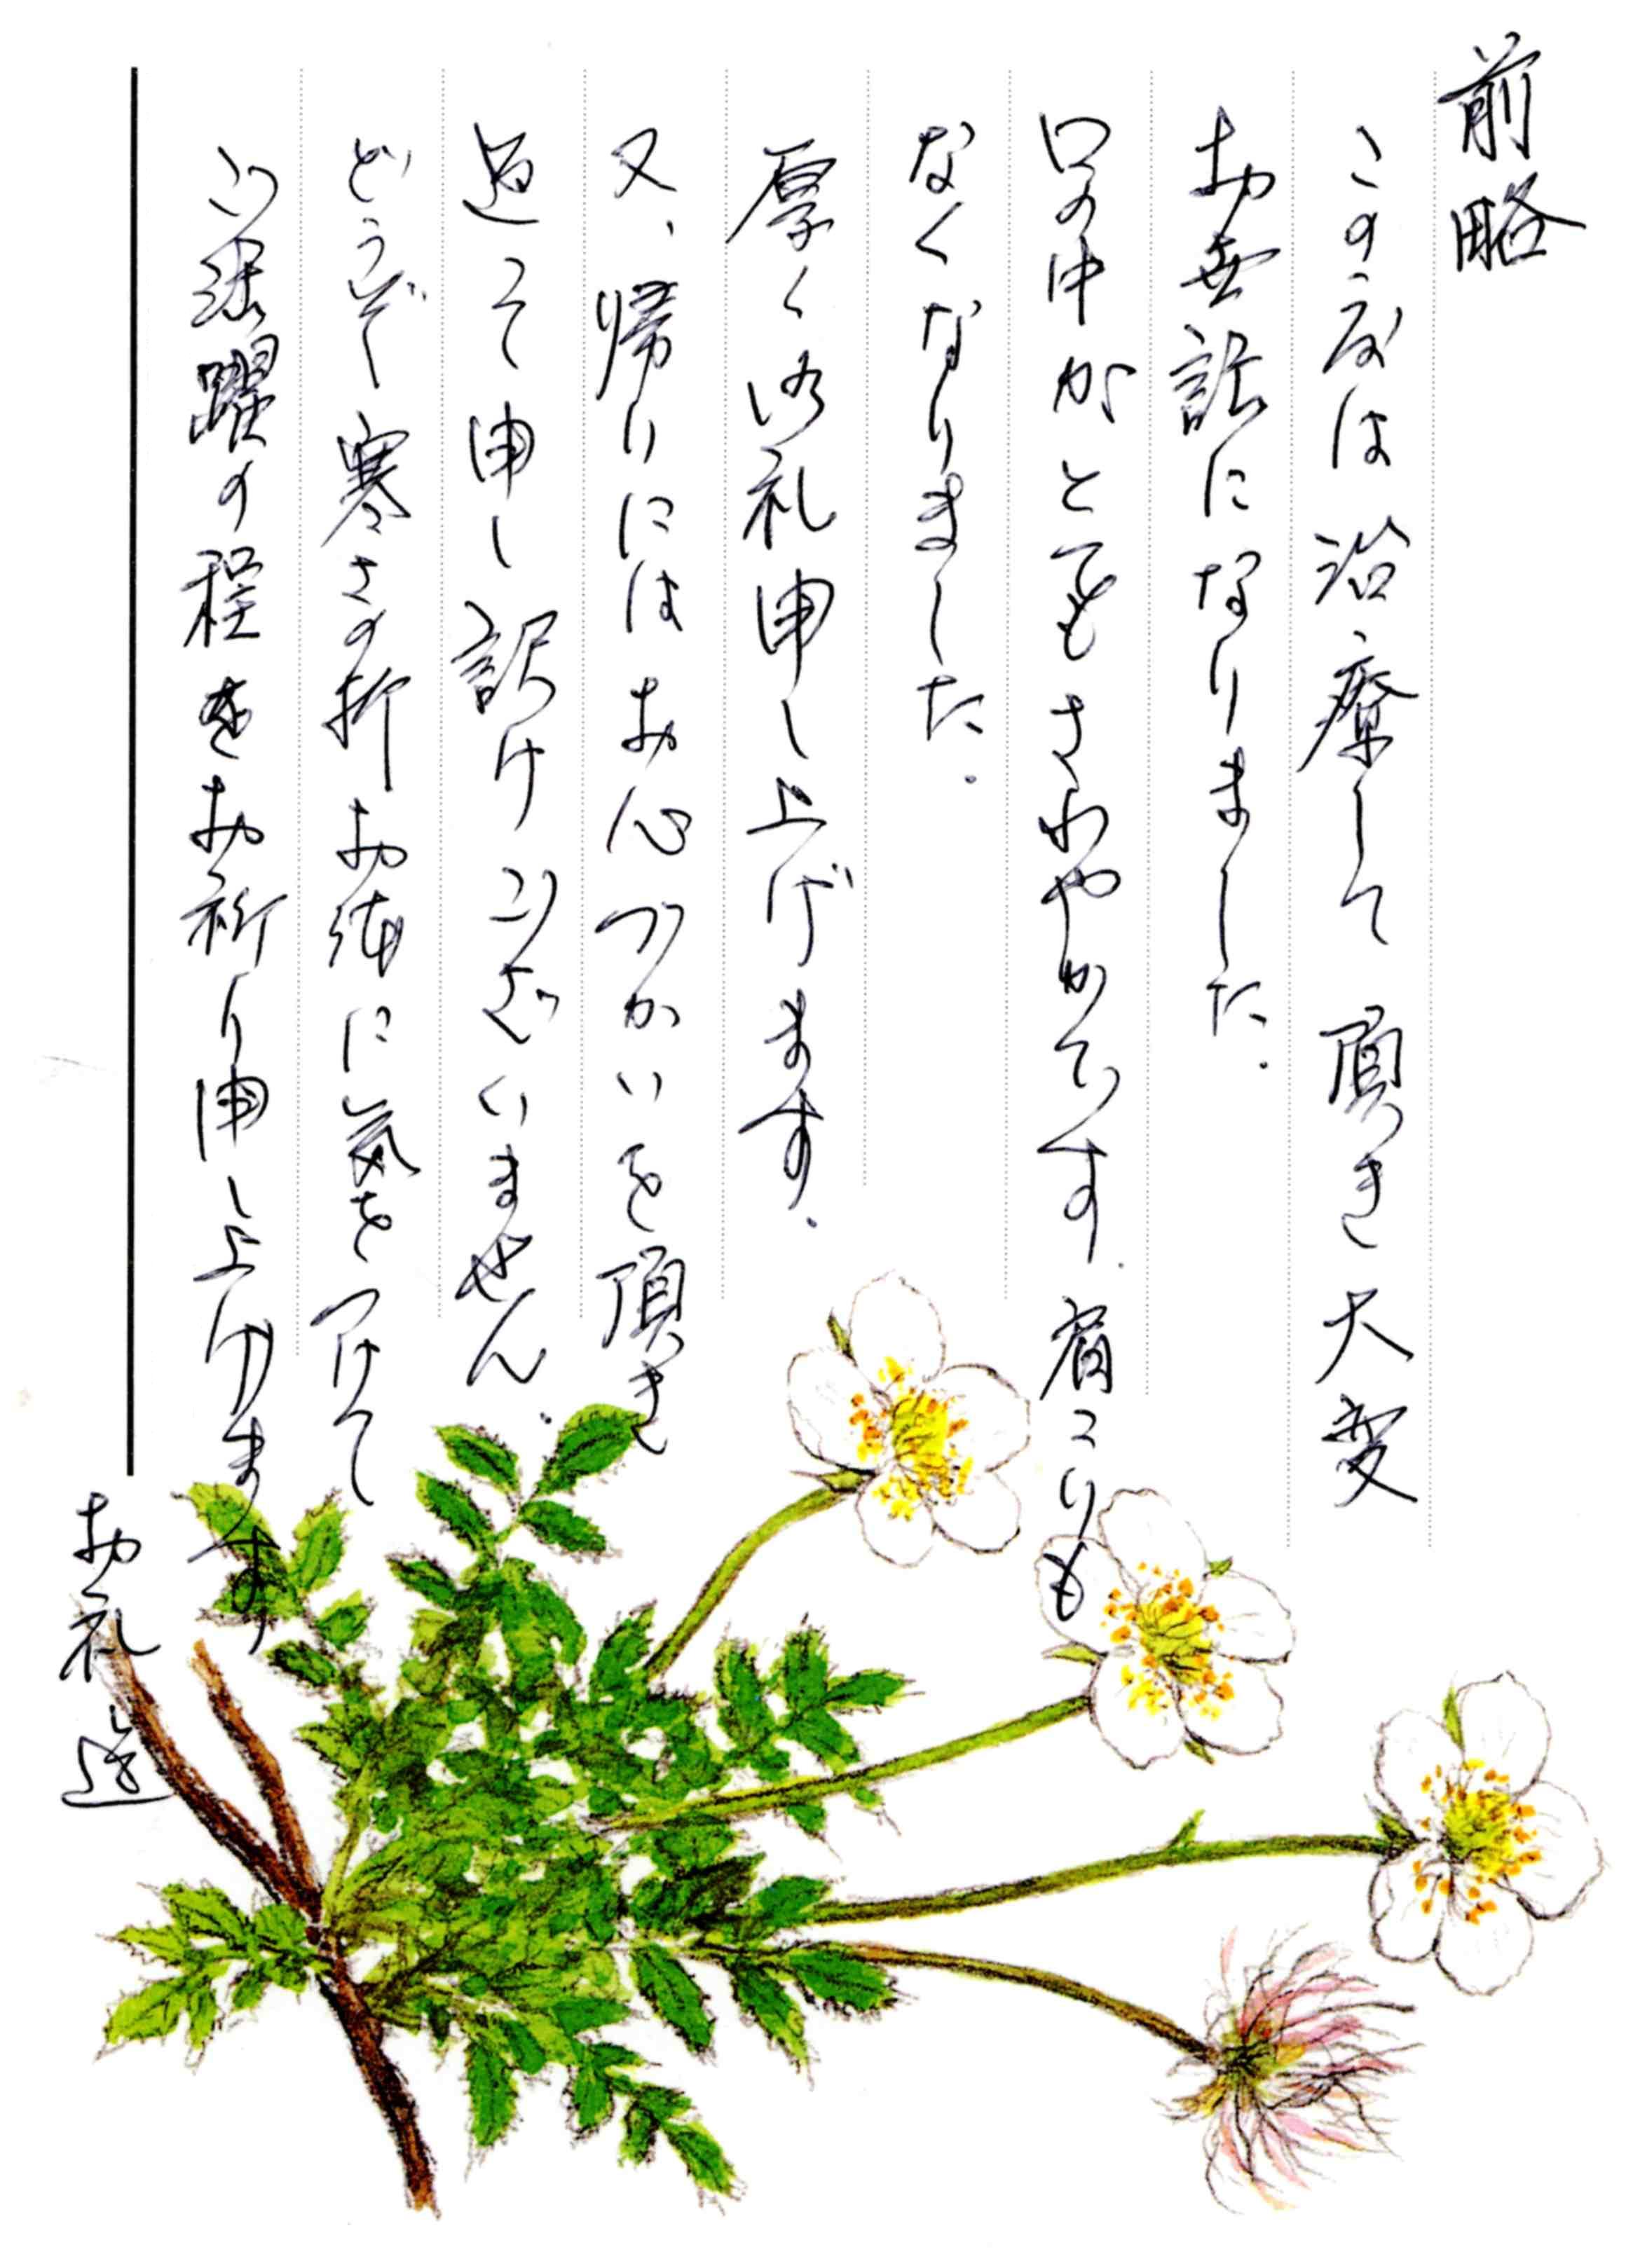 前略
この度は治療して頂き大変
お世話になりました.
口の中がとてもさわやかです.肩こりも
なくなりました.
厚く御礼申し上げます.
又、帰りにはお心づかいを頂き
返って申し訳けございません.
どうぞ寒さの折お体に気をつけて
ご活躍の程をお祈り申し上げます
お礼迄